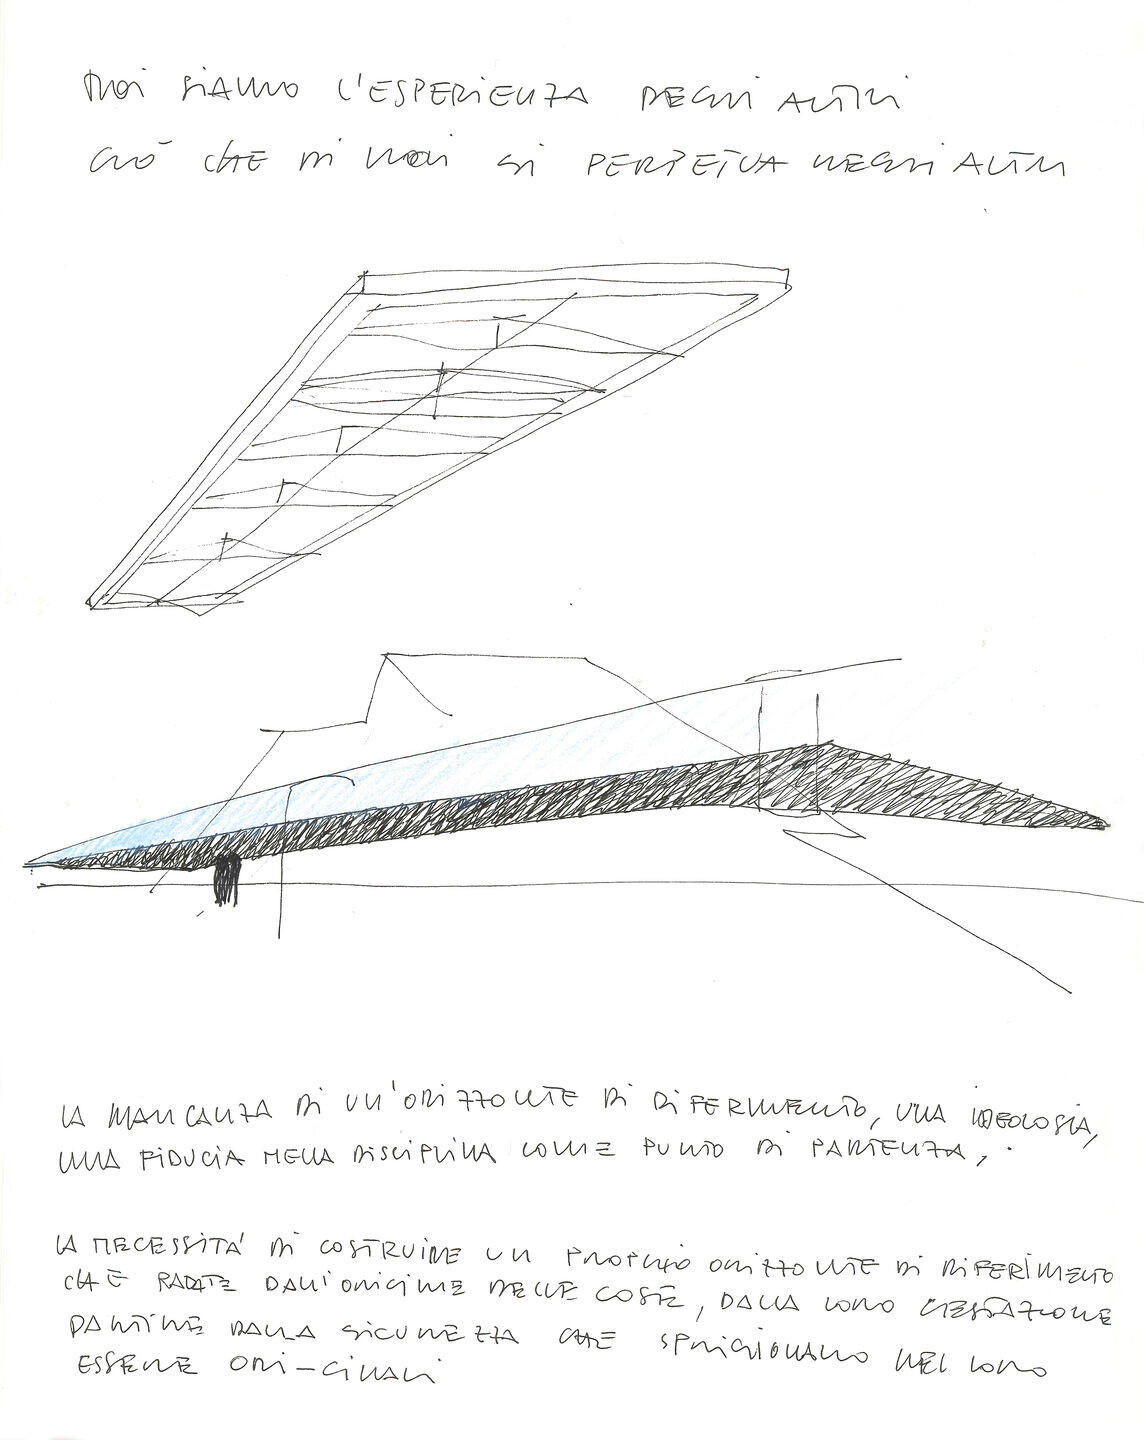 NOI SIAMO L'ESPERIENZA DEGLI ALTRI
CIÒ CHE DI NOI SI PERPETUA NEGLI ALTRI
LA MANCANZA DI UN'ORIZZONTE DI RIFERIMENTO, UNA IDEOLOGIA,
UNA FIDUCIA NELLA DISCIPLINA COME PUNTO DI PARTENZA,
LA NECESSITÀ DI COSTRUIRE UN PROPRIO ORIZZONTE DI RIFERIMENTO
CHE PARTE DALL'ORIGINE DELLE COSE, DALLA LORO
PARTIRE DALLA SICUREZZA CHE SPRIGIONANO NEL LORO
ESSERE ORI-GINALI